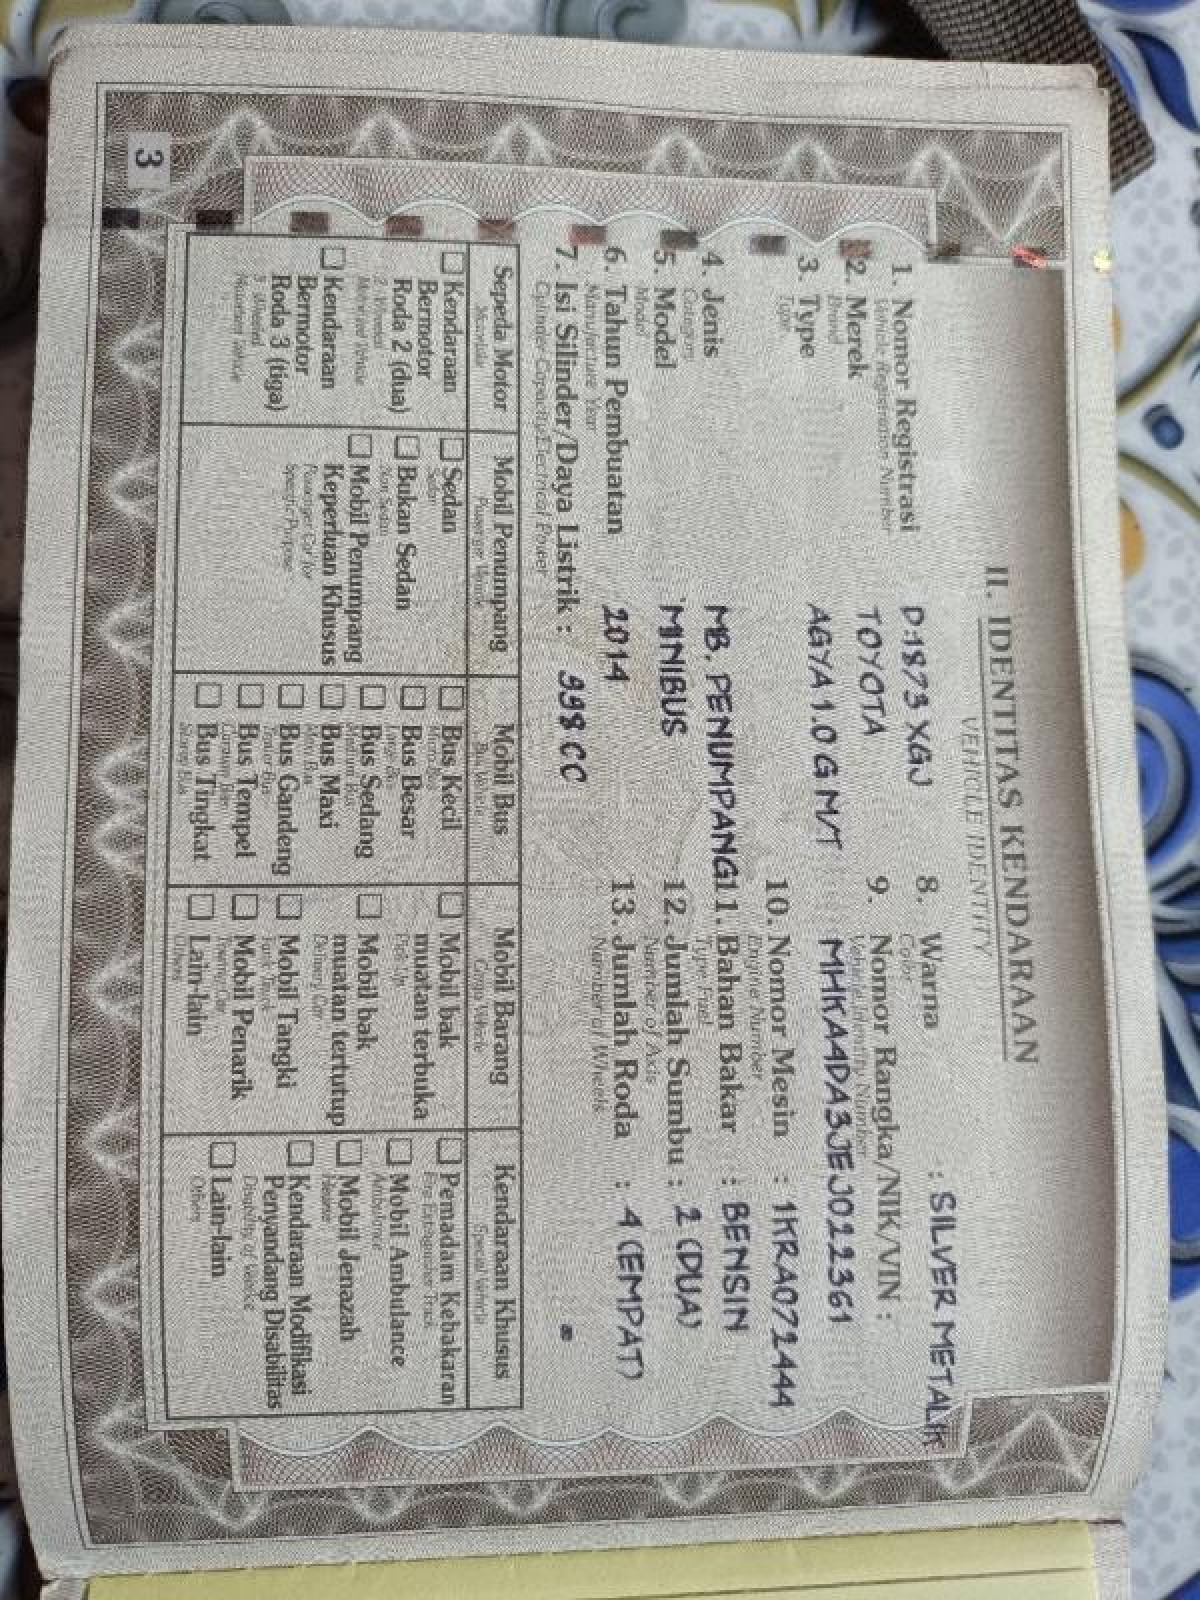 II. IDENTITAS KENDARAAN
VEHICLE IDENTITY
1. Nomor Registrasi D 1873 XGJ
Vehicle Registration Number
2. Merek TOYOTA
Brand
3. Type AGYA 1.0 G M/T
Type
4. Jenis MB. PENUMPANG
Category
5. Model MINIBUS
Model
6. Tahun Pembuatan 2014
Manufacture Year
7. Isi Silinder/Daya Listrik : 998 CC
Cylinder Capacity/Electrical Power
8. Warna : SILVER METALIK
Color
9. Nomor Rangka/NIK/VIN :
Vehicle Identity Number
MHKA4DA3JEJ022361
10. Nomor Mesin : 1KRA072444
Engine Number
11. Bahan Bakar : BENSIN
Type Fuel
12. Jumlah Sumbu : 2 (DUA)
Number of Axis
13. Jumlah Roda : 4 (EMPAT)
Number of Wheels
Sepeda Motor
Kendaraan
Bermotor
Roda 2 (dua)
2 Wheeled
Motorized Vehicle
Kendaraan
Bermotor
Roda 3 (tiga)
3 Wheeled
Motorized Vehicle
Mobil Penumpang
Sedan
Sedan
Bukan Sedan
Non Sedan
Mobil Penumpang
Keperluan Khusus
Passenger Car for
Specific Purpose
Mobil Bus
Bus Kecil
Bus Besar
Bus Sedang
Bus Maxi
Bus Gandeng
Bus Tempel
Bus Tingkat
Mobil Barang
Mobil bak
muatan terbuka
Mobil bak
muatan tertutup
Mobil Tangki
Mobil Penarik
Lain-lain
Others
Kendaraan Khusus
Special Vehicle
Pemadam Kebakaran
Mobil Ambulance
Mobil Jenazah
Kendaraan Modifikasi
Penyandang Disabilitas
Lain-lain
Others
3